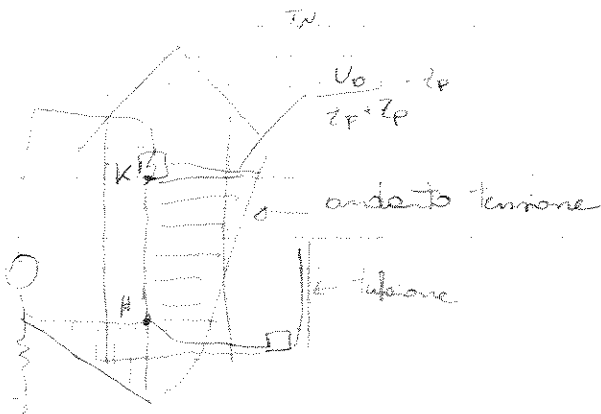 TN
U₀ / Z_F + Z_P · Z_P
K
andato tensione
H
tubazione